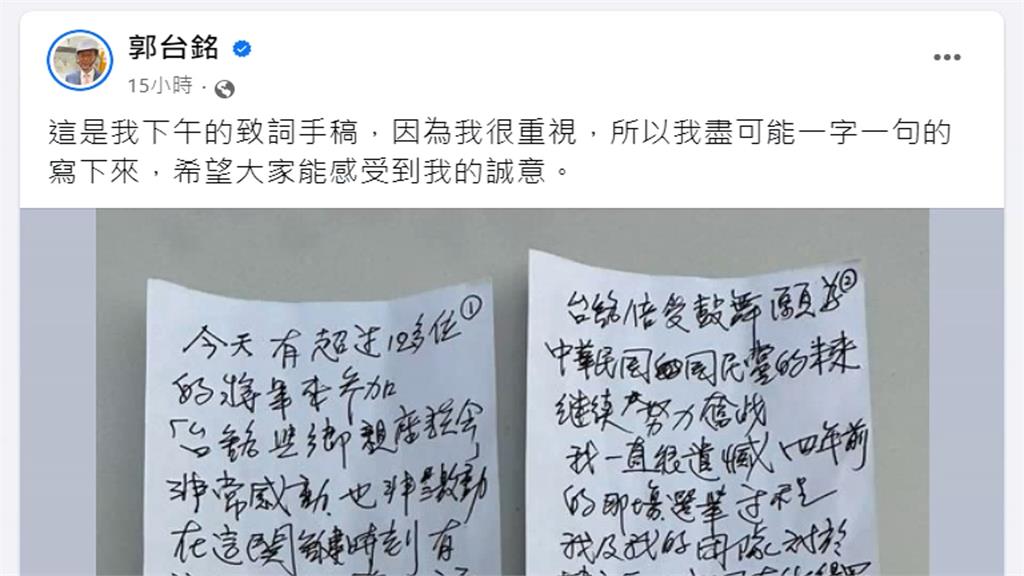 郭台銘
15小時 ·
這是我下午的致詞手稿，因為我很重視，所以我盡可能一字一句的
寫下來，希望大家能感受到我的誠意。
①
今天有超过120多位
的將軍來參加
「台銘與鄉親座談會
非常感動也非常激動
在這關鍵時刻有
②
台銘倍受鼓舞願為
中華民国和国民黨的未來
继续努力奮战
我一直很遺憾，四年前
的那場選举过程
我及我的团隊对於